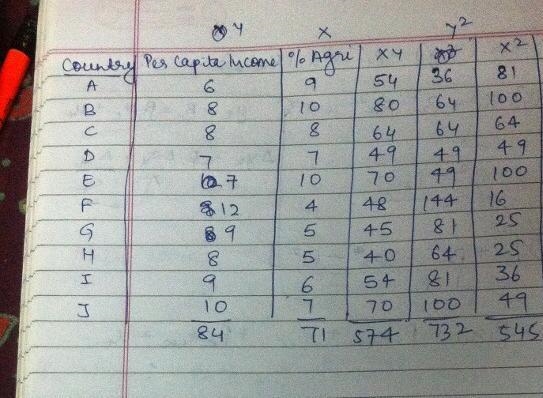 Y X Y²
Country Per Capita Income % Agri XY X²
A 6 9 54 36 81
B 8 10 80 64 100
C 8 8 64 64 64
D 7 7 49 49 49
E 7 10 70 49 100
F 12 4 48 144 16
G 9 5 45 81 25
H 8 5 40 64 25
I 9 6 54 81 36
J 10 7 70 100 49
84 71 574 732 545